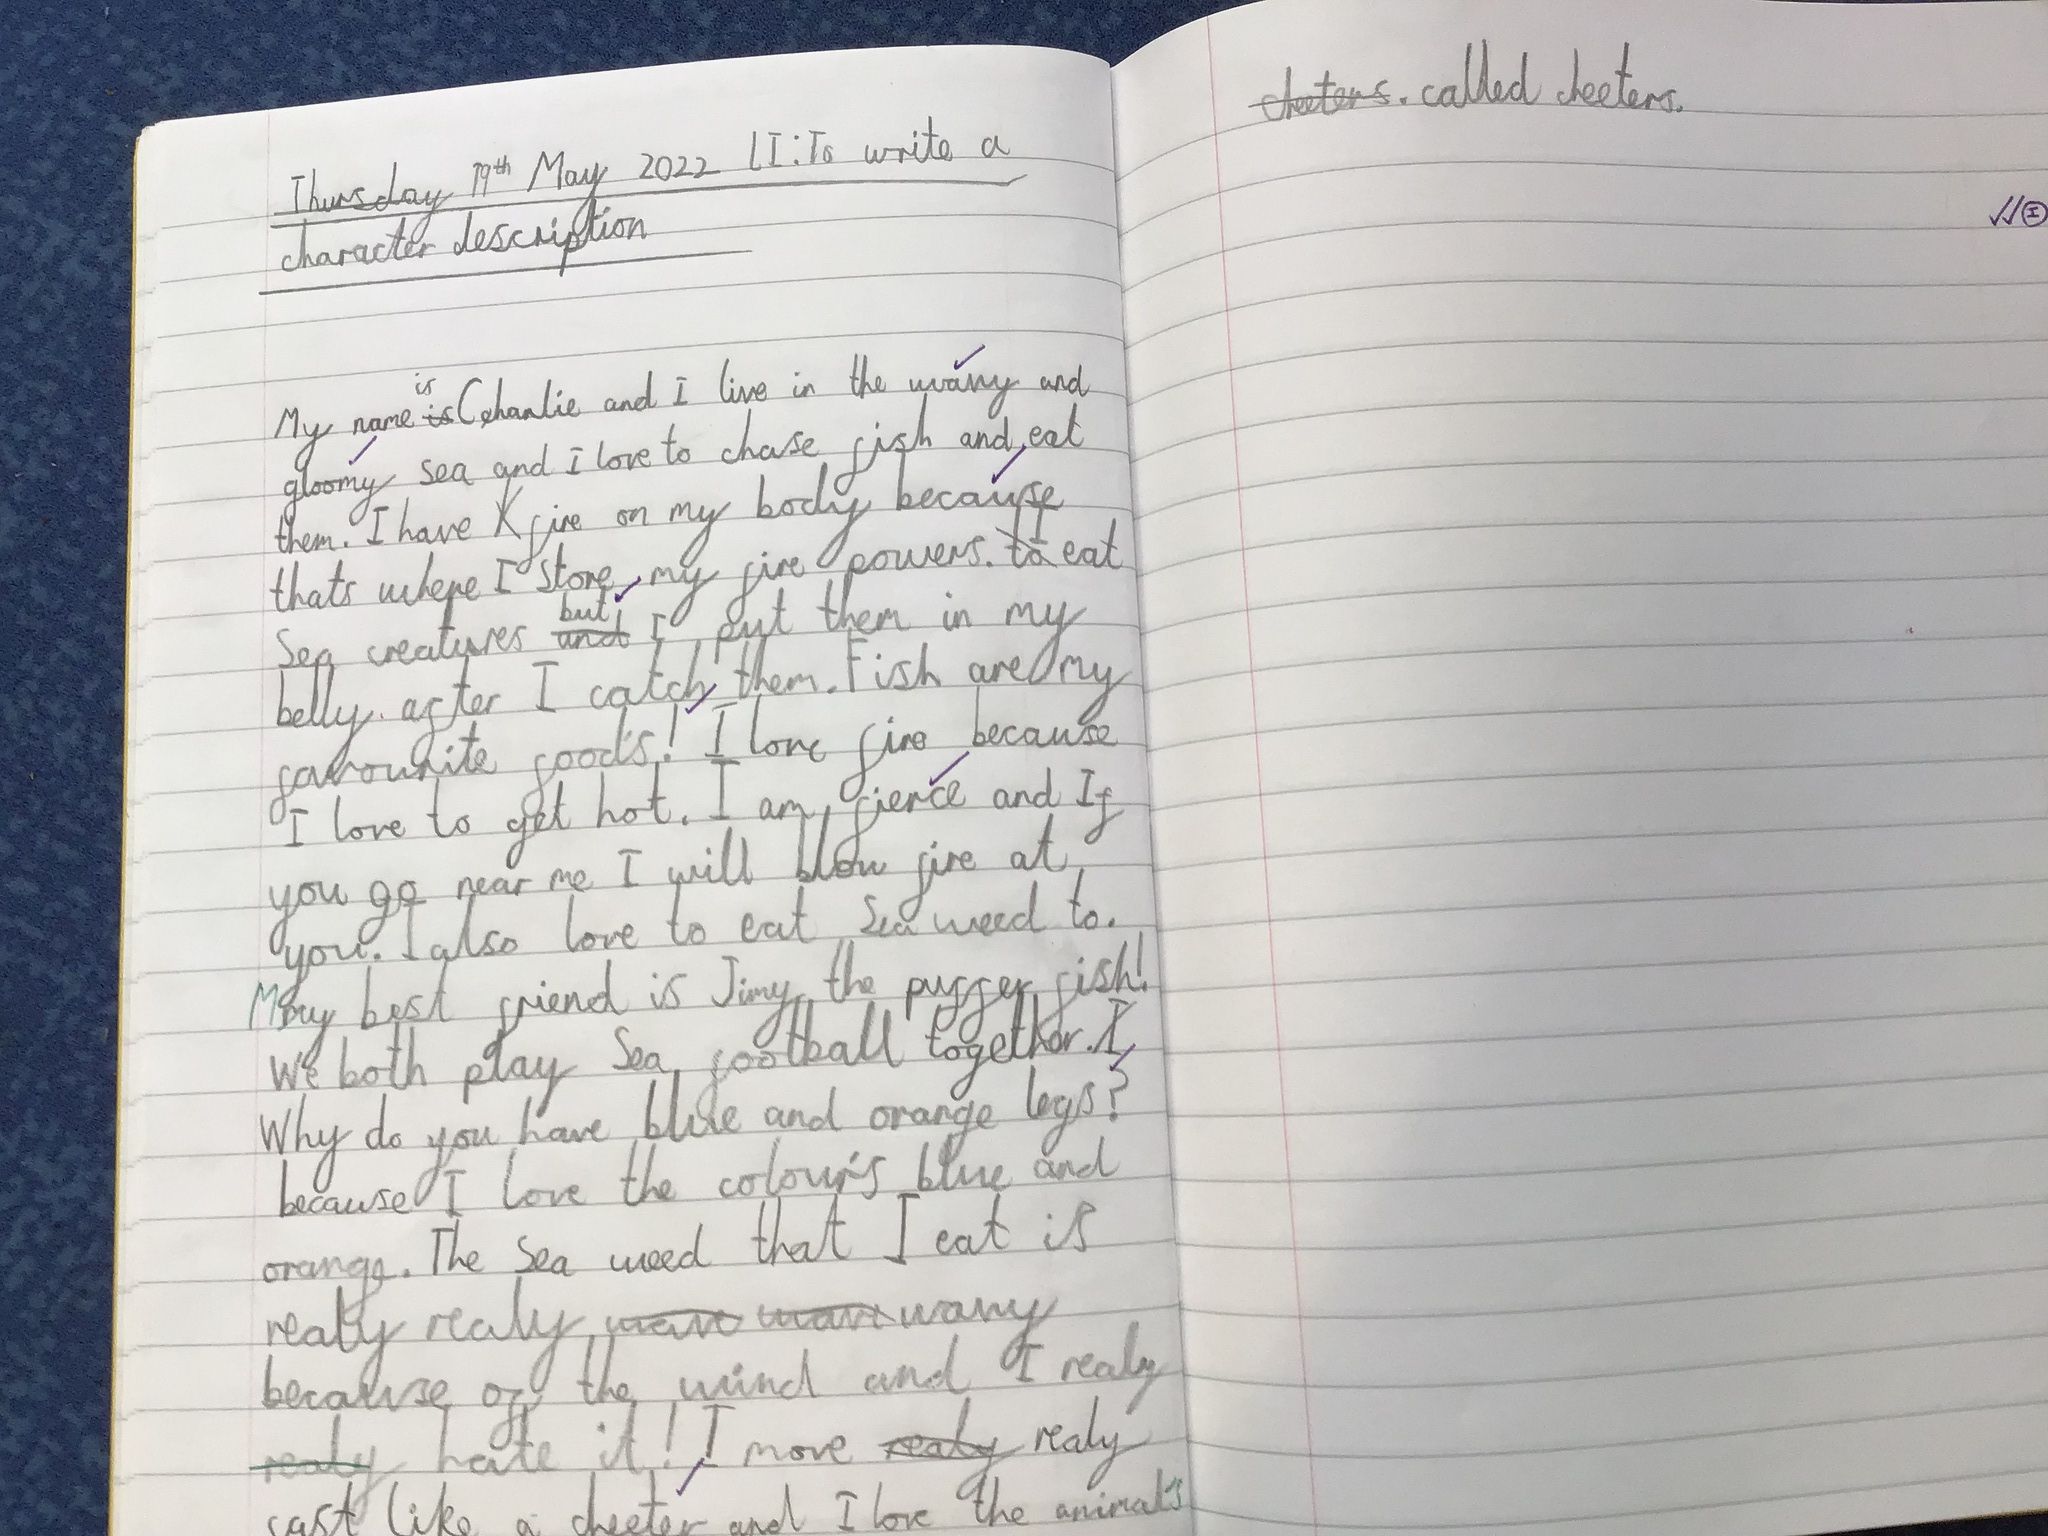 Thursday 19th May 2022 LI: To write a
character description
is
My name is Charlie and I live in the wavy and
gloomy sea and I love to chase fish and eat
them. I have fire on my body because
thats where I store my fire powers. to I eat
Sea creatures and but I put them in my
belly. after I catch them. Fish are my
favourite foods! I love fire because
I love to get hot. I am fierce and If
you go near me I will blow fire at
you. I also love to eat Sea weed to.
My best friend is Jimy the puffer fish!
We both play Sea football together. I
Why do you have blue and orange legs?
because I love the colour's blue and
orange. The Sea weed that I eat is
realy realy wavy
because of the wind and I realy
realy hate it! I move realy realy
fast like a cheeter and I love the animals
cheeters. called cheeters.